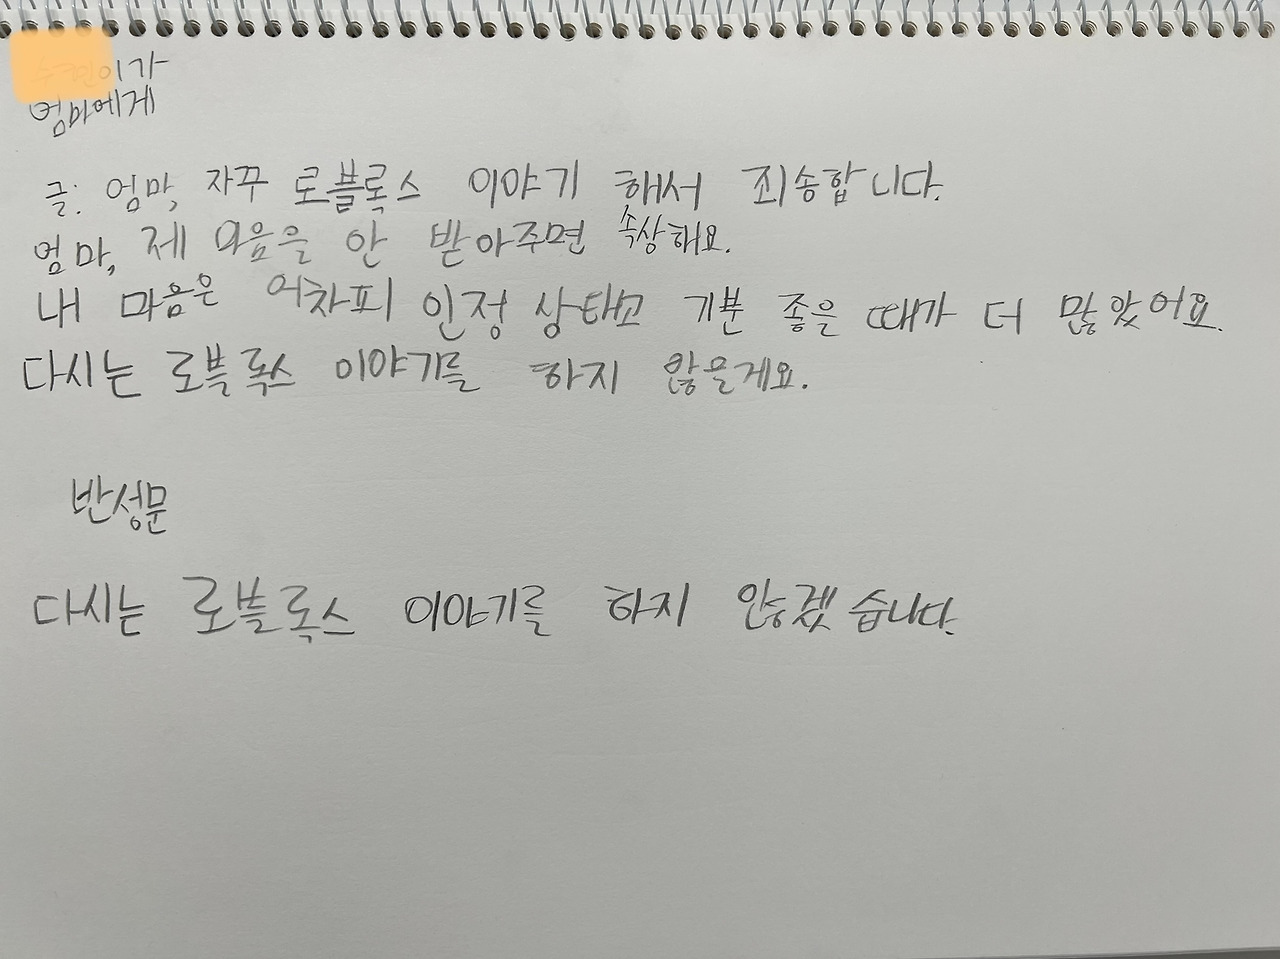 이가
엄마에게
글: 엄마, 자꾸 로블록스 이야기 해서 죄송합니다.
엄마, 제 마음을 안 받아주면 속상해요.
내 마음은 어차피 인정 상태고 기분 좋은 때가 더 많았어요.
다시는 로블록스 이야기를 하지 않을게요.
반성문
다시는 로블록스 이야기를 하지 않겠습니다.